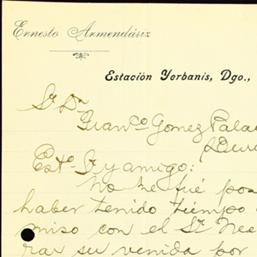 Ernesto Armendáriz
Estación Yerbanís, Dgo.,
Sr. Dn
Franco. Gomez Pala
Est. Sr. y amigo:
No me fué pos
haber tenido tiempo
miso con el Sr.
rar su venida por